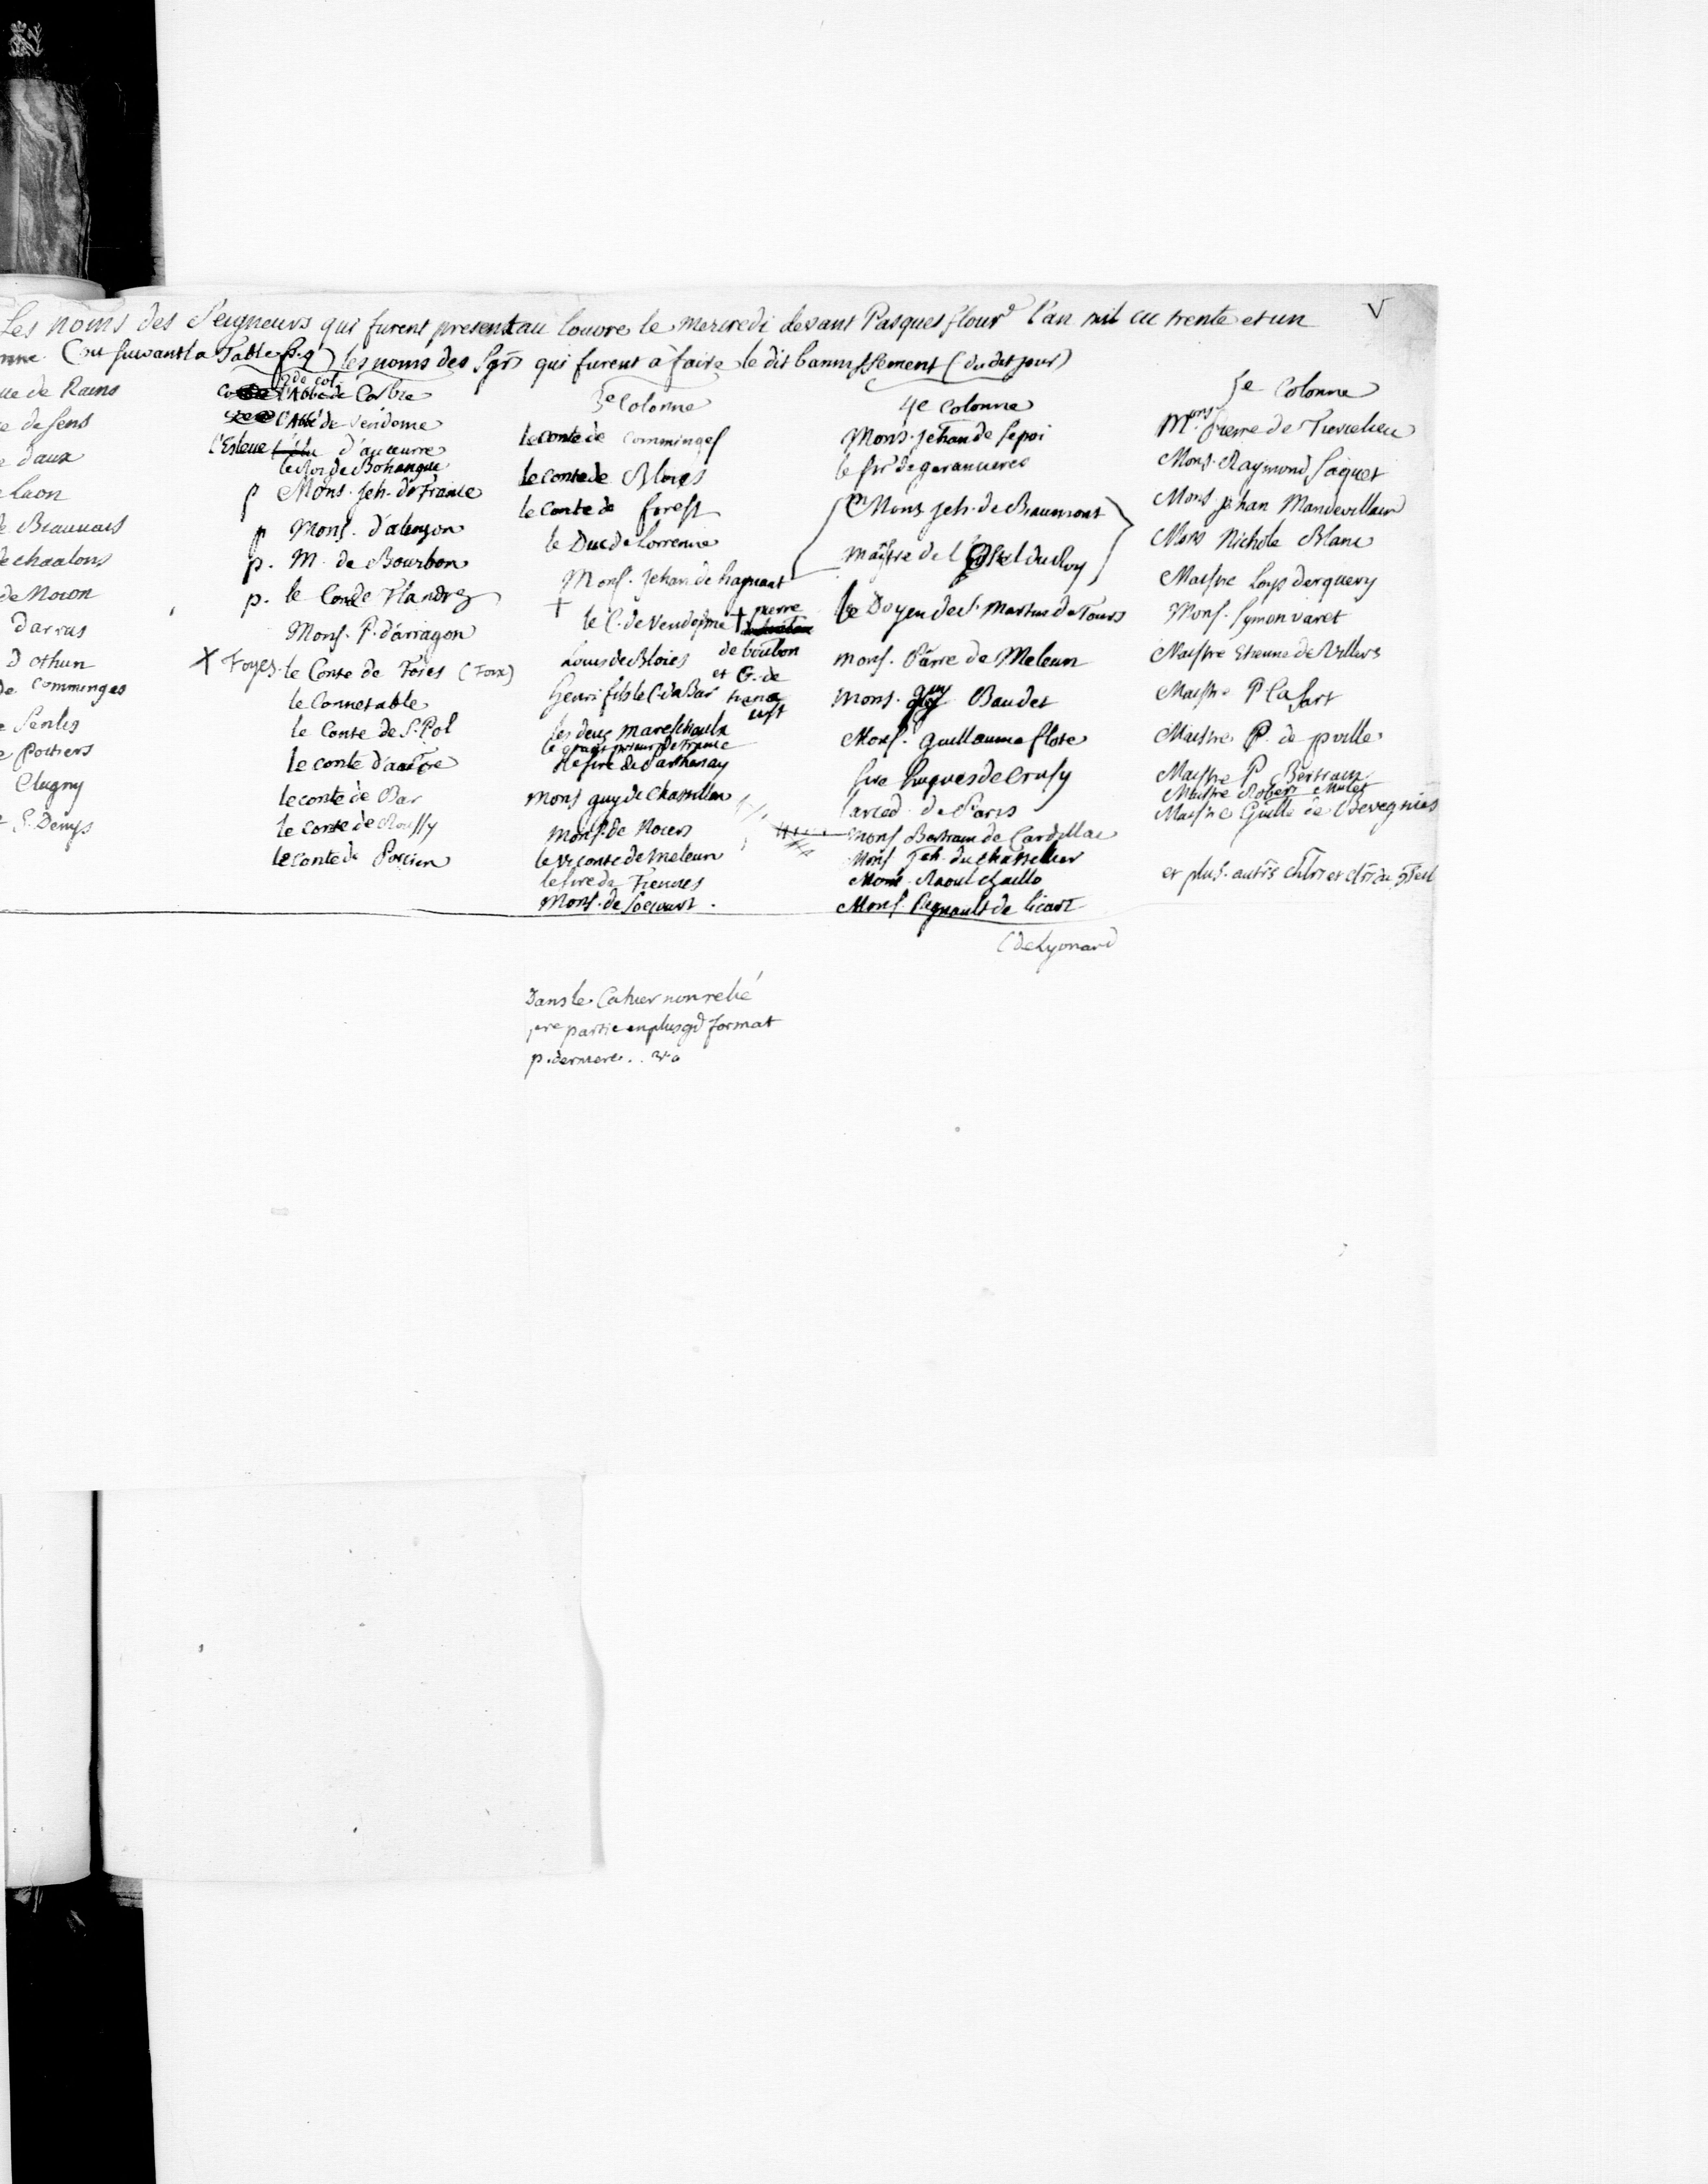 Les noms des Seigneurs qui furent present au louvre le mercredi devant Pasques flour^d l'an mil ccc trente et un
V
les noms des Sgrs qui furent a faire le dit bannissement (du dit jour)
ue de Rains
e de Sens
e daux
laon
de Beauvais
de chaalons
de Noion
darras
d othun
de Comminges
e Senlis
e Poitiers
Clugny
S. Denys
2de col.
l'Abbé de Corbie
l'Abbé de Vendome
l'Esleue d'auceurre
le Roi de Bohaigne
p Mons. Jeh. de France
p Mons. d'alençon
p. M. de Bourbon
p. le Conte de Flandres
Mons. P. d'arragon
X Foyes. le Conte de Foies (Foix)
le Connetable
le Conte de S. Pol
le conte d'aucerre
le conte de Bar
le conte de Roussy
le conte de Porcien
3e Colonne
le conte de Comminges
le conte de Bloys
le Conte de forest
le Duc de Lorrenne
Mons. Jehan de haynaut
+ le C. de Vendosme + pierre
de boulon
Louis de Bloies et G. de
henri fils le C. de Bar
les deux mareschaulx
le grant prieur de France
le sire de Parthenay
Mons guy de Chastillon
Mons. de Noiers
le viconte de Meleun
le sire de Fiennes
Mons. de Socourt.
4e Colonne
Mons. Jehan de Sepoi
le sire de garancieres
Mons Jeh. de Beaumont
maistre de l'Ostel du Roy
le Doyen de S. Martin de Tours
Mons. Pierre de Meleun
Mons. guy Baudet
Mons. guillaume flote
Sire hugues de Crusy
larced. de Paris
Mons Bertram de Cardillac
Mons Jeh. du chastellier
Mons. Raoul Chaillo
Mons. Regnault de licart
(de Lyonard
5e Colonne
Mons. Pierre de Tiercelieu
Mons. Raymond Saquet
Mons. Jehan Mandevillain
Mons Nichole Blanc
Maistre Loys derquery
Mons. Symon varet
Maistre Etienne de Villers
Maistre P la fart
Maistre P. de pville
Maistre P Bertram
Maistre Robert Mulet
Maistre Guille de Chevegnies
et plus. autrs chlrs et clrs du
Dans le Cahier non relié
pre partie en plus gd format
p. derniere. . vo